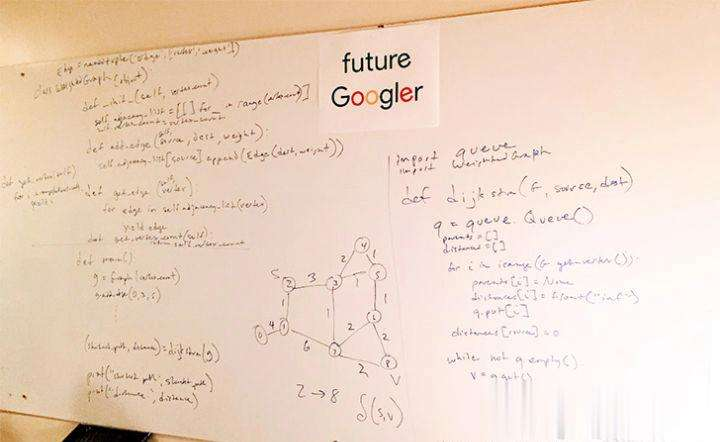 future
Googler
Edge = namedtuple('Edge', ['vertex', 'weight'])
class WeightedGraph(object)
def __init__(self, vertex_count)
self.adjacency_list = [[] for _ in range(vertex_count)]
self.vertex_count = vertex_count
def add_edge(self, source, dest, weight):
self.adjacency_list[source].append(Edge(dest, weight))
def get_edge(self, vertex)
for edge in self.adjacency_list(vertex)
yield edge
def get_vertex(self)
for i
yield i
def get_vertex_count(self):
return self.vertex_count
def main()
g = Graph(
(shortest_path, distance) = dijkstra(g)
print("shortest path", shortest_path)
print("distance", distance)
4
2 1
S 2 3 3 1 5
1 1 1
0 4 1 2 6
6 7 2
2 8
2 → 8 V
δ(s,v)
import queue
import WeightedGraph
def dijkstra(G, source, dest)
q = queue.Queue()
parents = []
distances = []
for i in range(G.getvertex()):
parents[i] = None
distances[i] = float("inf")
q.put[i]
distances[source] = 0
while not q.empty().
v = q.get()